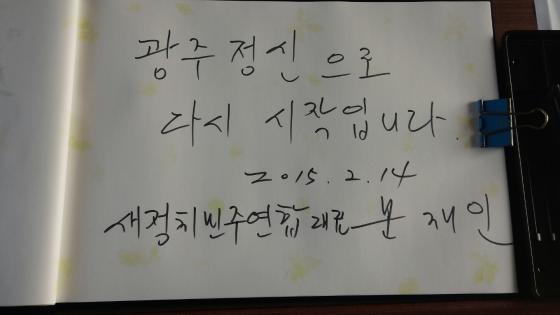 광주정신으로
다시 시작입니다.
2015. 2. 14
새정치민주연합 대표 문재인